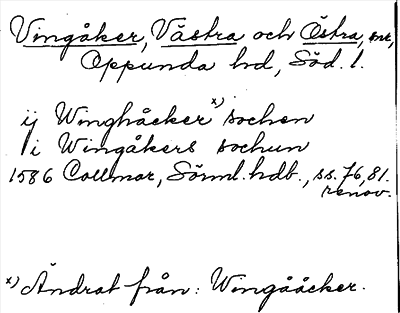 Vingåker, Västra och Östra, snr,
Oppunda hd, Söd. l.
ij Winghåcker x) sochen
i Wingåkers sochun
1586 Collmar, Sörml. hdb., ss. 76, 81.
renov.
x) Ändrat från: Wingååcker.